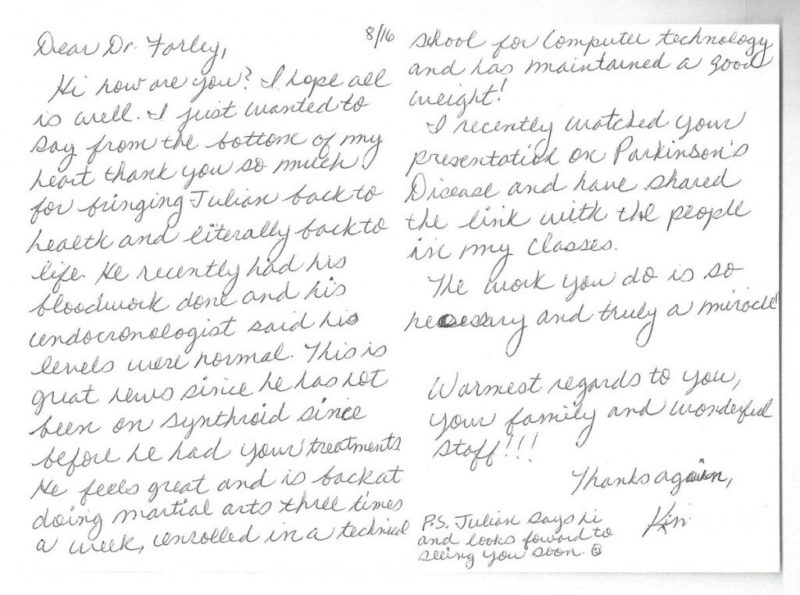 8/16
Dear Dr. Farley,
Hi how are you? I hope all
is well. I just wanted to
say from the bottom of my
heart thank you so much
for bringing Julian back to
health and literally back to
life. He recently had his
bloodwork done and his
endocronologist said his
levels were normal. This is
great news since he has not
been on synthroid since
before he had your treatments
He feels great and is back at
doing martial arts three times
a week, enrolled in a technical
school for computer technology
and has maintained a good
weight!
I recently watched your
presentation on Parkinson's
Disease and have shared
the link with the people
in my classes.
The work you do is so
necessary and truly a miracle!
Warmest regards to you,
your family and wonderful
staff!!!
Thanks again,
Kim
P.S. Julian says hi
and looks foward to
seeing you soon ☺